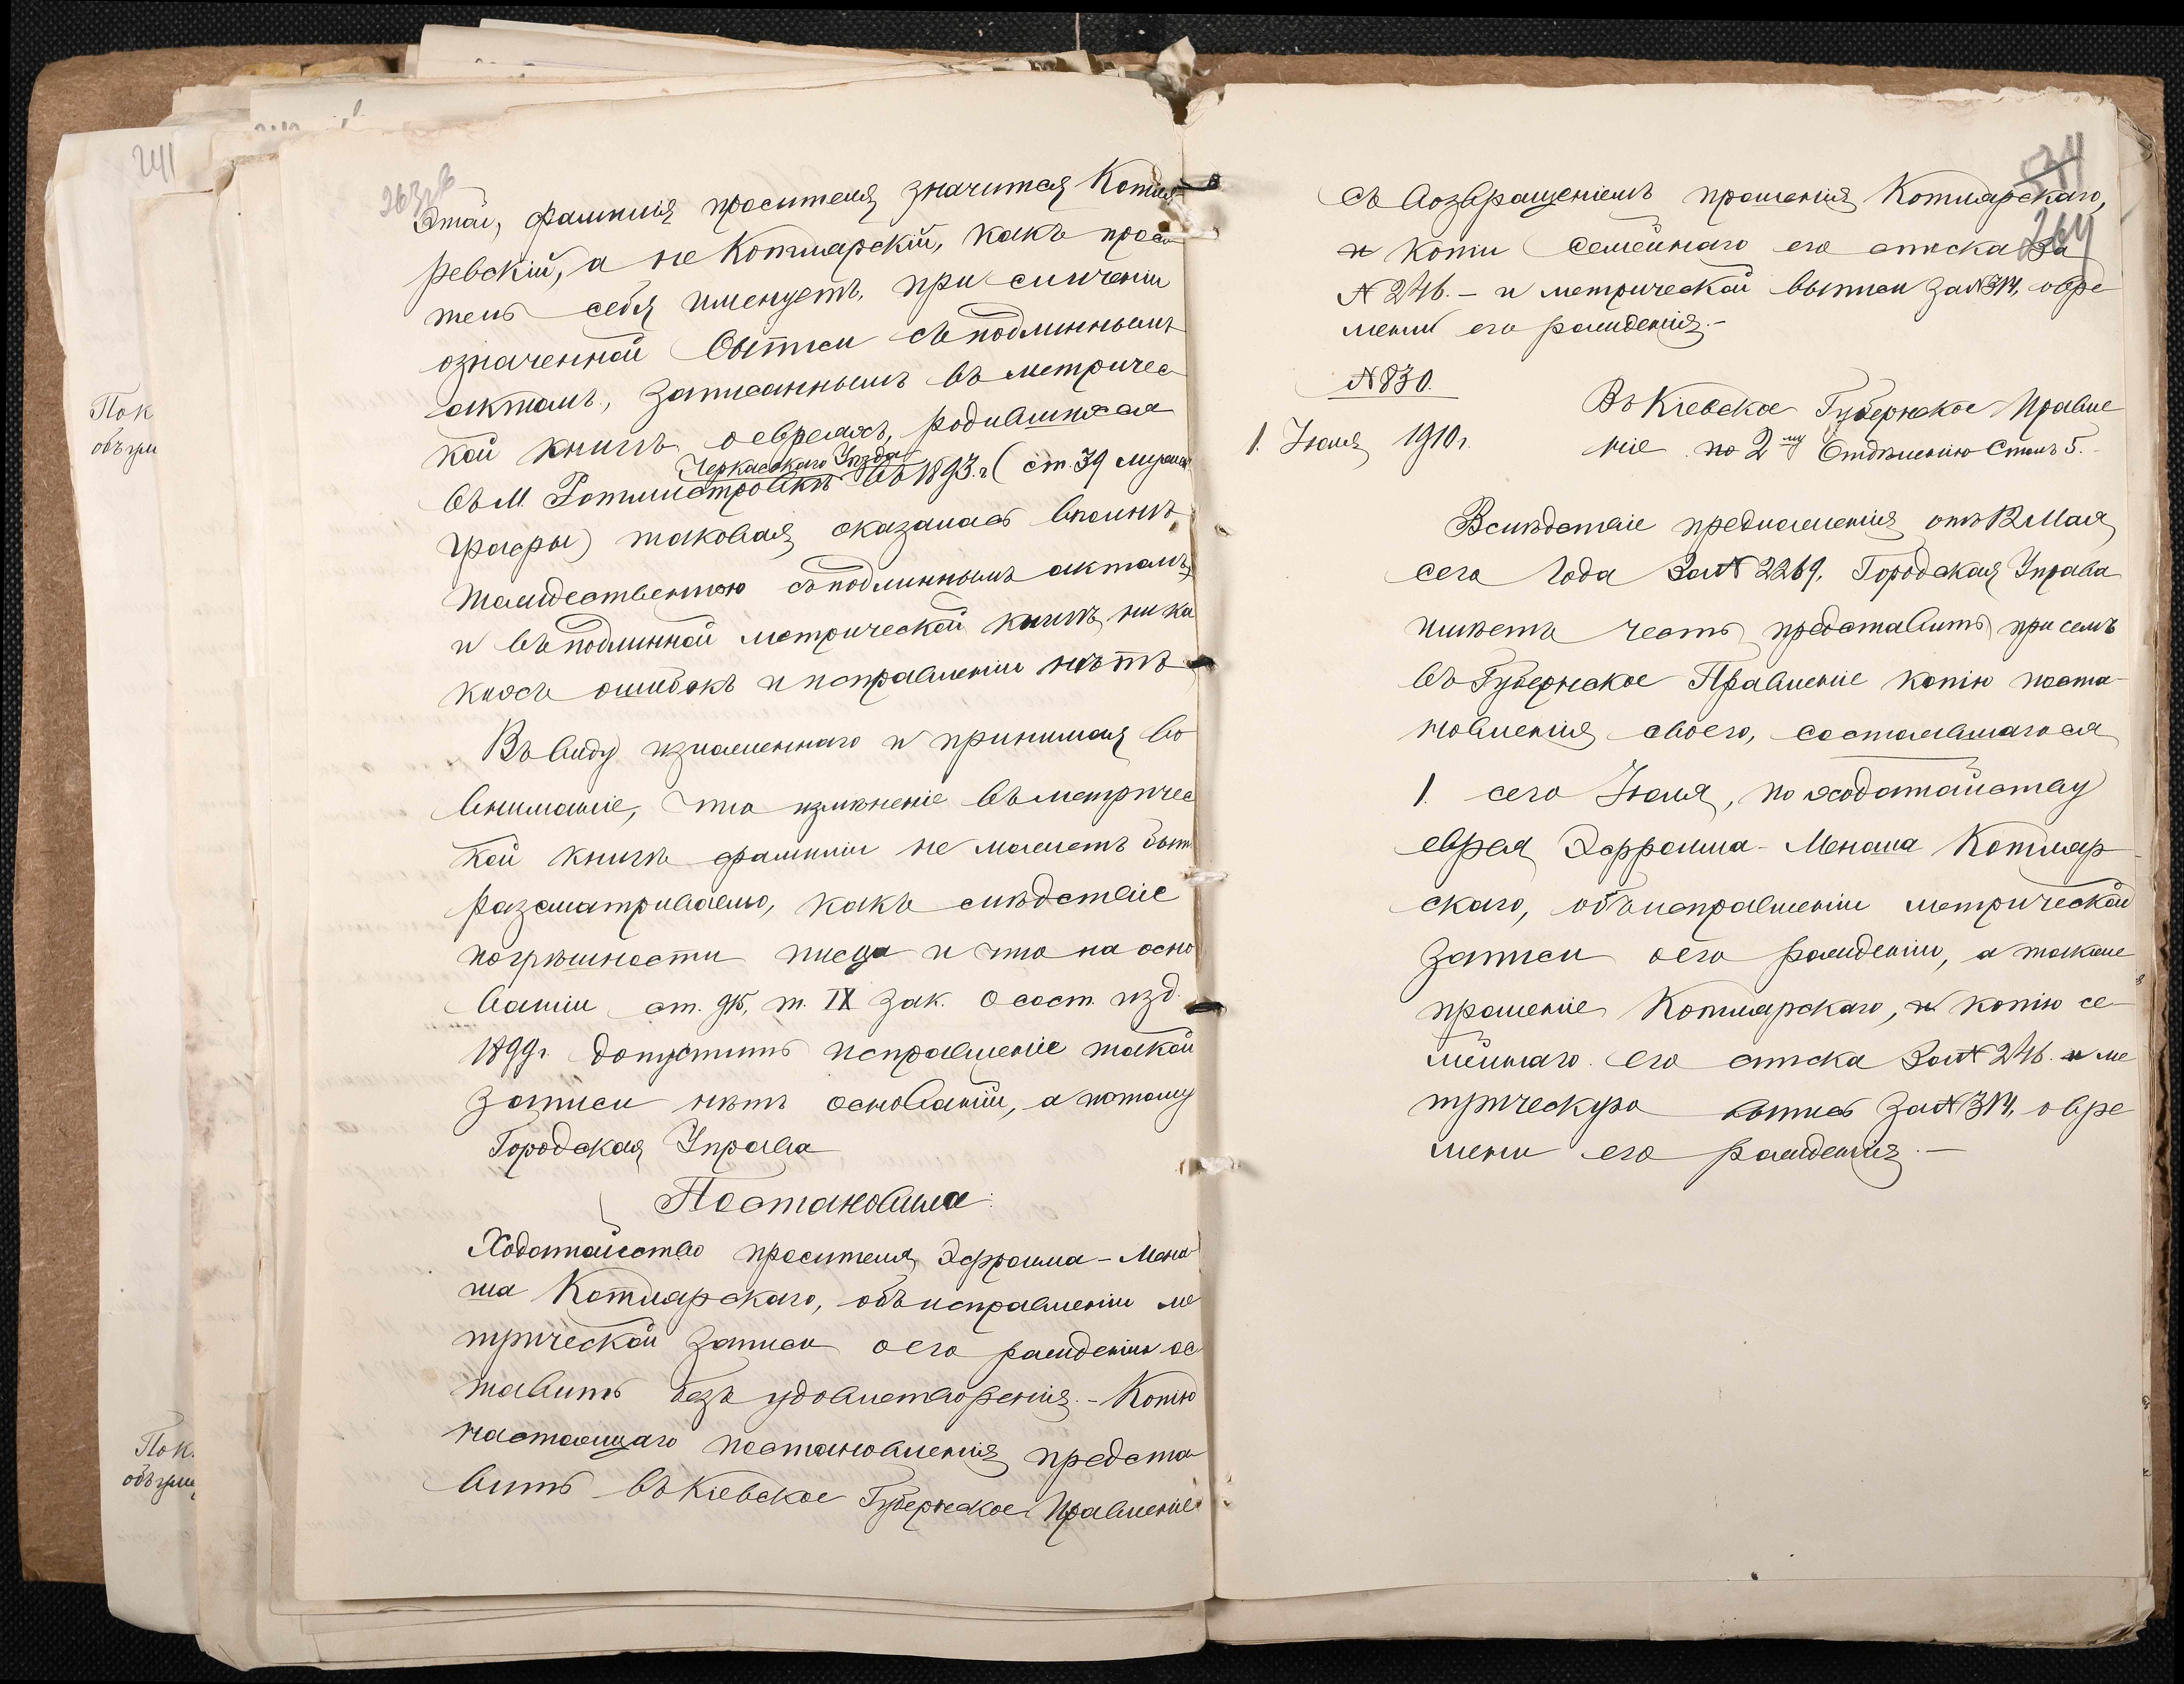 241
Пок
объ ули
Пок.
объ ули
263 об
этой, фамилія просителя значится Котля-
ревскій, а не Котлярскій, какъ проси
тель себя именуетъ, при сличеніи
означенной выписи съ подлиннымъ
актомъ, записаннымъ въ метричес
кой книгѣ о евреяхъ, родившихся
Черкасскаго Уѣзда
въ М. Ротмистровкѣ въ 1893 г. (ст. 39 мужск
графы) таковая оказалась вполнѣ
тождественною съ подлиннымъ актомъ,
и въ подлинной метрической книгѣ ника
кихъ ошибокъ и исправленій нѣтъ
Въ виду изложеннаго и принимая во
вниманіе, что измѣненіе въ метричес
кой книгѣ фамиліи не можетъ быть
разсматриваемо, какъ слѣдствіе
погрѣшности писца и что на осно
ваніи ст. 915, т. IX Зак. о сост. изд.
1899 г. допустить исправленіе такой
записи нѣтъ основаній, а потому
Городская Управа
Постановила:
Ходатайство просителя Эфроима-Мена
ша Котлярскаго, объ исправленіи ме
трической записи о его рожденіи ос
тавить безъ удовлетворенія. - Копію
настоящаго постановленія предста
вить въ Кіевское Губернское Правленіе
511
264
съ возвращеніемъ прошенія Котлярскаго,
и копіи семейнаго его списка за
№ 246. - и метрической выписи за № 314, о вре
мени его рожденія. -
№ 830.
1. Іюля 1910 г.
Въ Кіевское Губернское Правле
ніе по 2му Отдѣленію Столъ 5.
Вслѣдствіе предложенія отъ 12 Мая
сего года за № 2269, Городская Управа
имѣетъ честь представить при семъ
въ Губернское Правленіе копію поста-
новленія своего, состоявшагося
1. сего Іюля, по ходатайству
еврея Эфроима - Менаша Котляр
скаго, объ исправленіи метрической
записи о его рожденіи, а также
прошеніе Котлярскаго, и копію се-
мейнаго его списка за № 246. и ме
трическую выпись за № 314, о вре
мени его рожденія. -